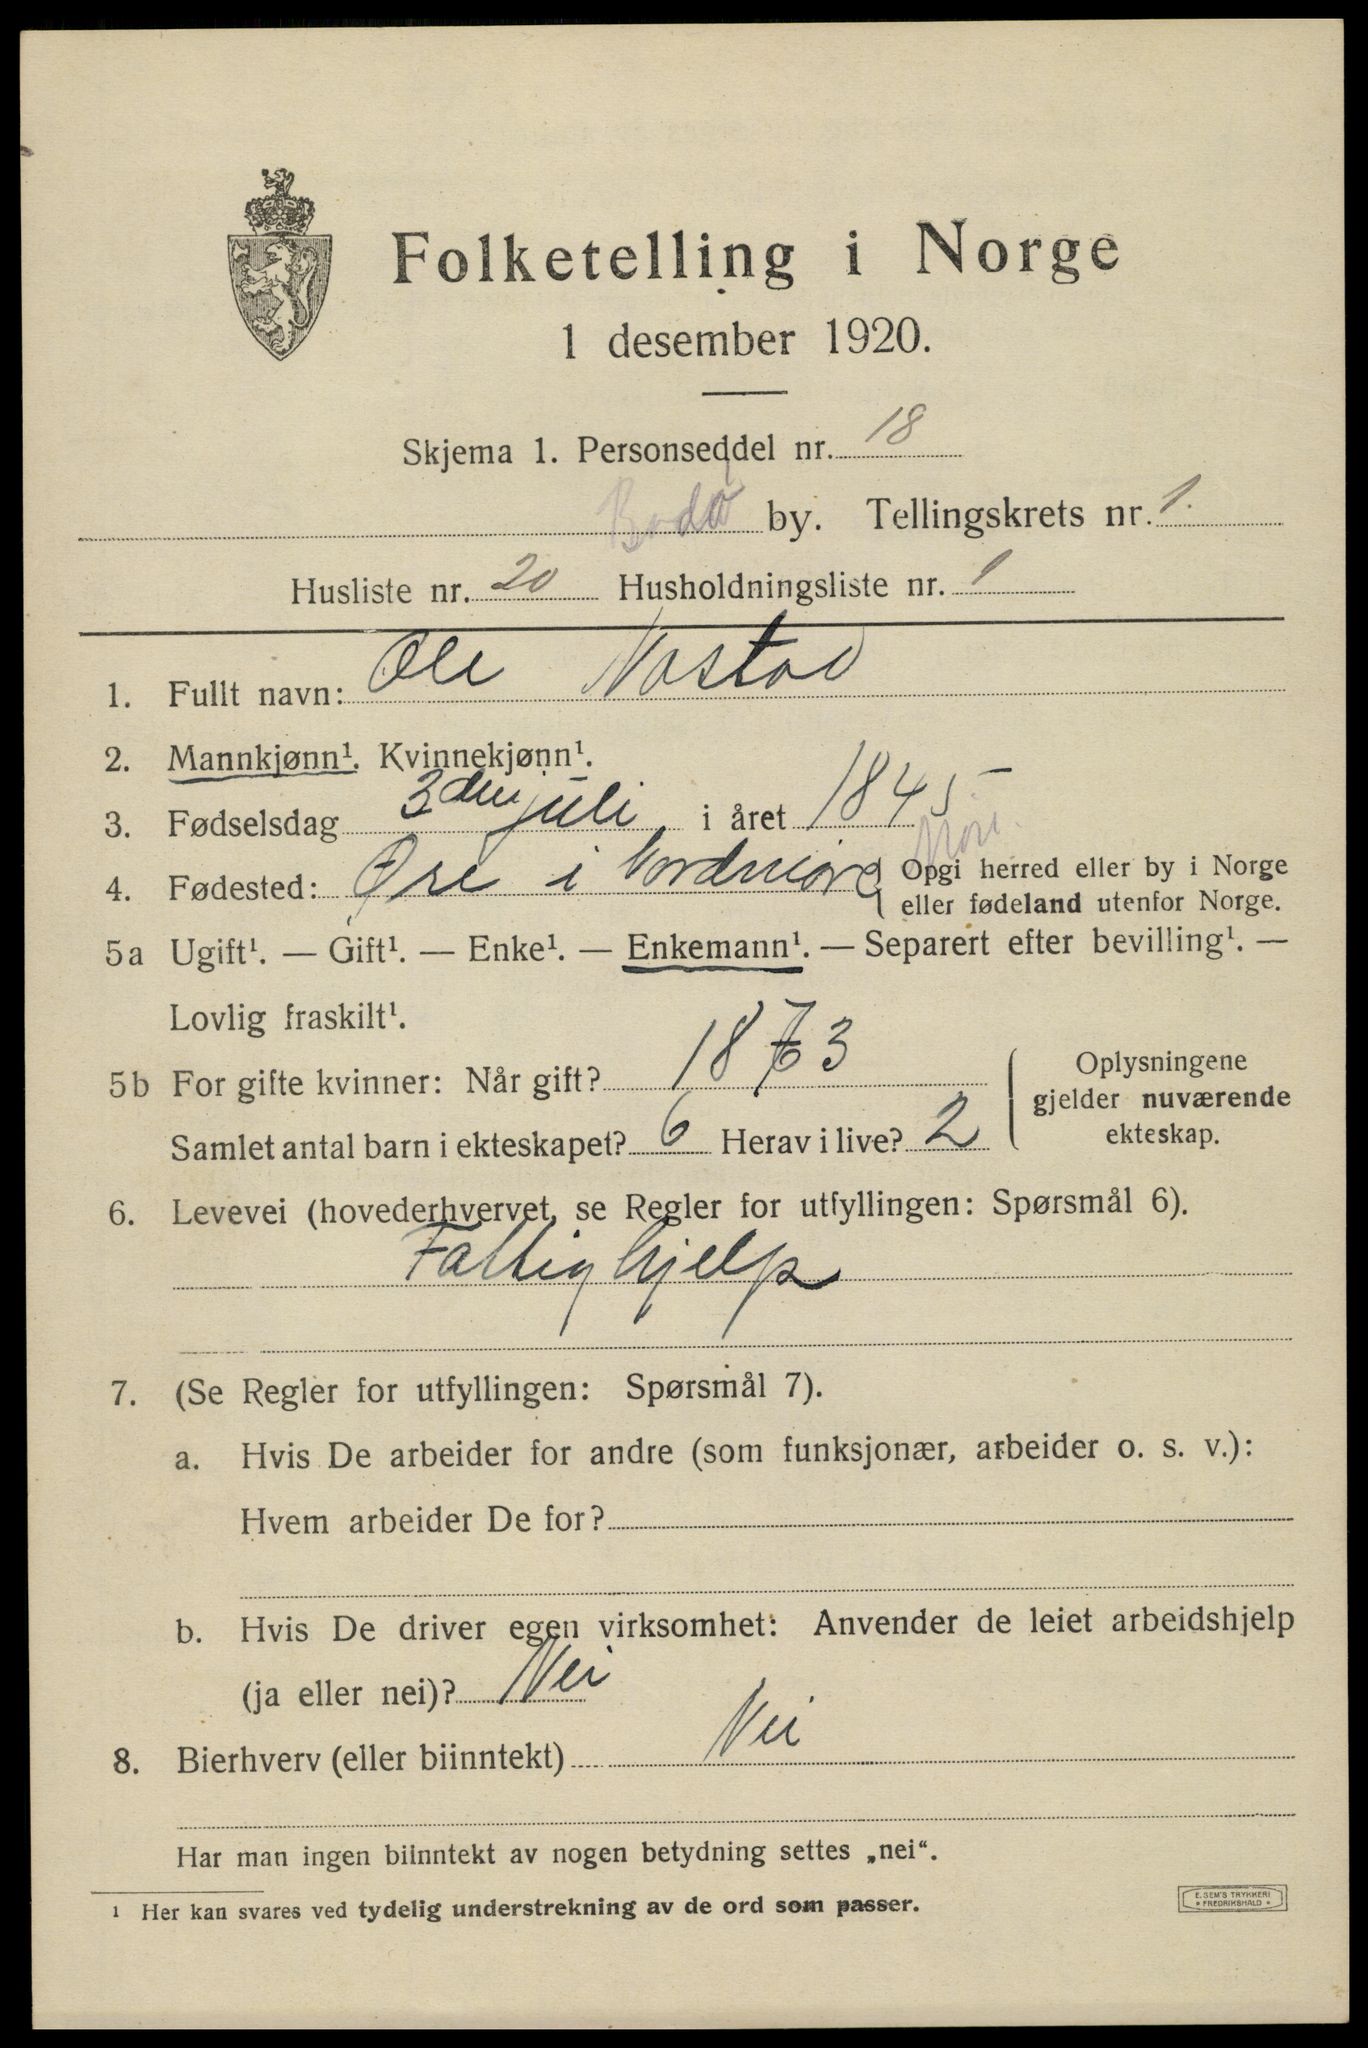 Folketelling i Norge
1 desember 1920.
Skjema 1. Personseddel nr. 18
Bodø by. Tellingskrets nr. 1.
Husliste nr. 20 Husholdningsliste nr. 1
1. Fullt navn: Ole Nostad
2. Mannkjønn¹. Kvinnekjønn¹.
3. Fødselsdag 3den juli i året 1845
4. Fødested: Øre i Nordmøre Opgi herred eller by i Norge
eller fødeland utenfor Norge.
5a Ugift¹. — Gift¹. — Enke¹. — Enkemann¹. — Separert efter bevilling¹. —
Lovlig fraskilt¹.
5b For gifte kvinner: Når gift? 1873
Samlet antal barn i ekteskapet? 6 Herav i live? 2
Oplysningene
gjelder nuværende
ekteskap.
6. Levevei (hovederhvervet, se Regler for utfyllingen: Spørsmål 6).
Fattighjelp
7. (Se Regler for utfyllingen: Spørsmål 7).
a. Hvis De arbeider for andre (som funksjonær, arbeider o. s. v.):
Hvem arbeider De for?
b. Hvis De driver egen virksomhet: Anvender de leiet arbeidshjelp
(ja eller nei)? Nei
8. Bierhverv (eller biinntekt) Nei
Har man ingen biinntekt av nogen betydning settes „nei“.
¹ Her kan svares ved tydelig understrekning av de ord som passer.
E. SEM'S TRYKKERI
FREDRIKSHALD